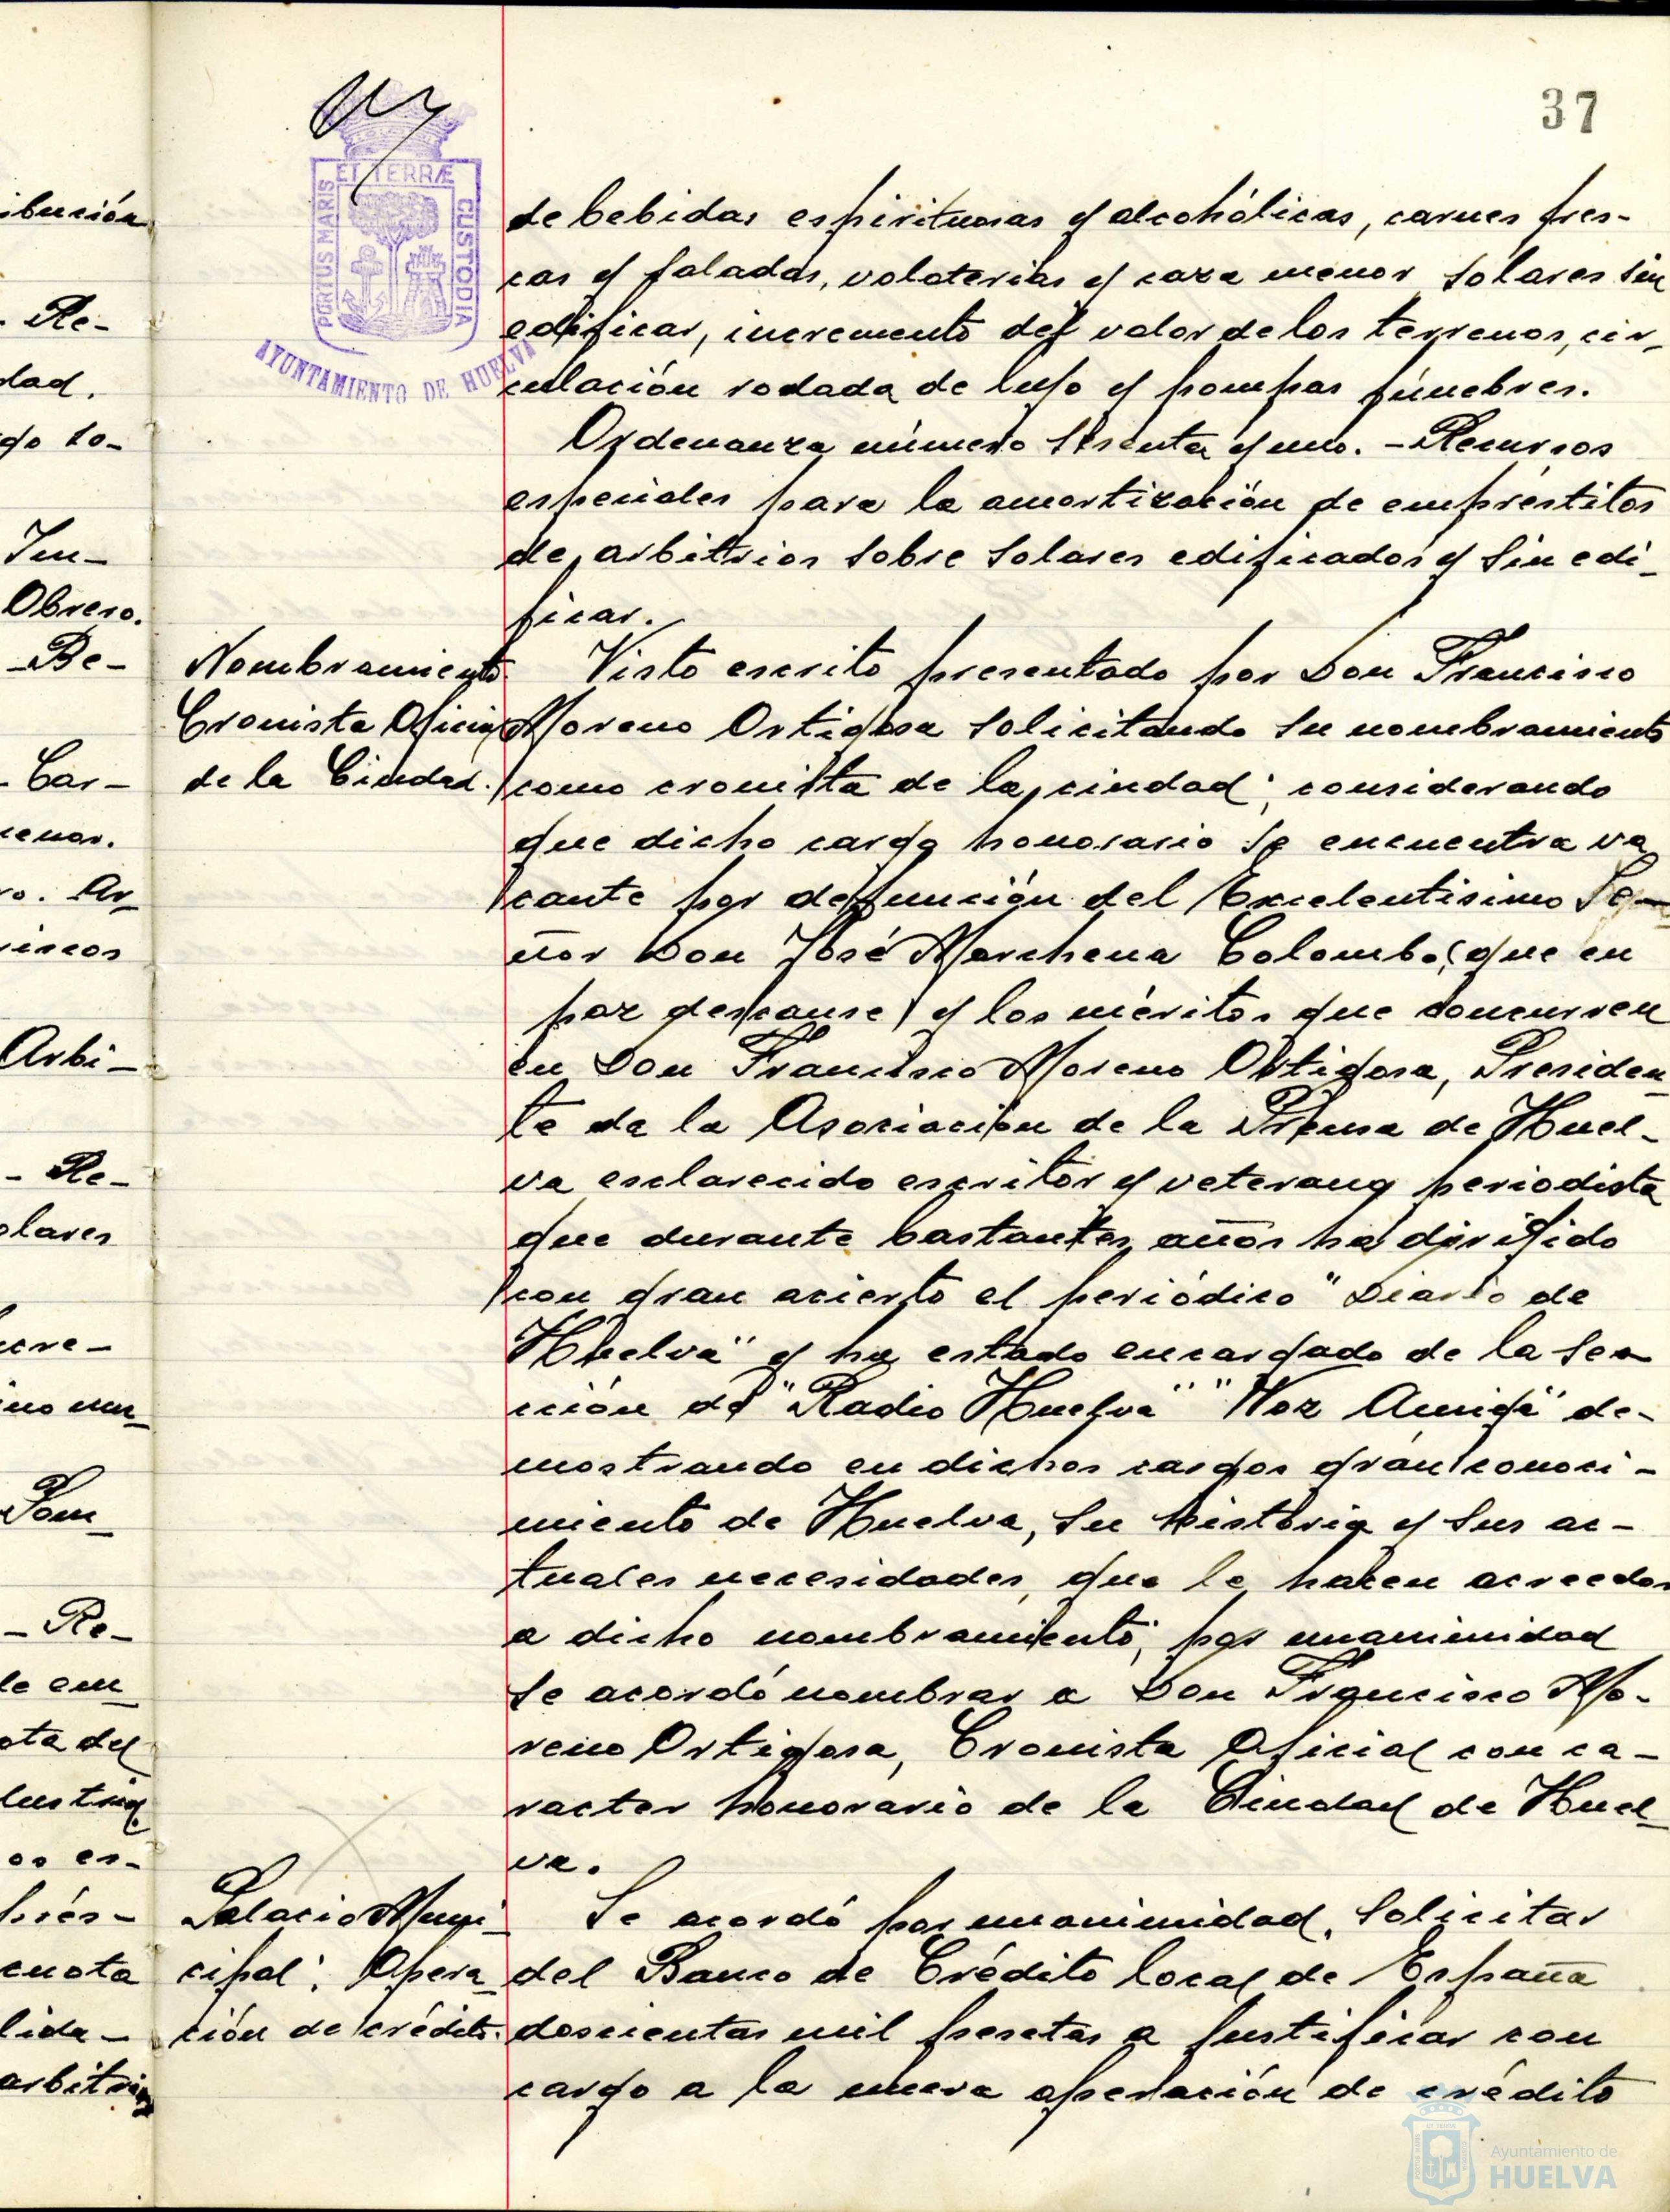 37
ET TERRÆ
PORTUS MARIS
CUSTODIA
AYUNTAMIENTO DE HUELVA
de bebidas espirituosas y alcohólicas, carnes fres-
cas y saladas, volaterias y caza menor solares sin
edificar, incremento del valor de los terrenos, cir-
culación rodada de lujo y pompas fúnebres.
Ordenanza número sesenta y uno. - Recursos
especiales para la amortización de empréstitos
de arbitrios sobre solares edificados y sin edi-
ficar.
Nombramiento
Cronista Oficial
de la Ciudad.
Visto escrito presentado por Don Francisco
Moreno Ortigosa solicitando su nombramiento
como cronista de la ciudad; considerando
que dicho cargo honorario se encuentra va
cante por defunción del Excelentisimo Se-
ñor Don José Marchena Colombo (que en
paz descanse) y los méritos que concurren
en Don Francisco Moreno Ortigosa, Presiden
te de la Asociación de la Prensa de Huel-
va esclarecido escritor y veterano periodista
que durante bastantes años ha dirigido
con gran acierto el periódico "Diario de
Huelva" y ha estado encargado de la sec
ción de "Radio Huelva" "Voz Amiga" de-
mostrando en dichos cargos gran conoci-
miento de Huelva, su historia y sus ac-
tuales necesidades, que le hacen acreedor
a dicho nombramiento; por unanimidad
se acordó nombrar a Don Francisco Mo-
reno Ortigosa, Cronista Oficial con ca-
racter honorario de la Ciudad de Huel-
va.
Palacio Muni-
cipal: Opera-
ción de crédito.
Se acordó por unanimidad, solicitar
del Banco de Crédito local de España
doscientas mil pesetas a justificar con
cargo a la nueva operación de crédito
ibución
- Re-
dad.
go so-
Im-
Obrero.
- Be-
- Car-
Arbi-
- Re-
olares
- Re-
de em
ota del
os es-
prés-
cuota
lida-
arbitrios
Ayuntamiento de
HUELVA